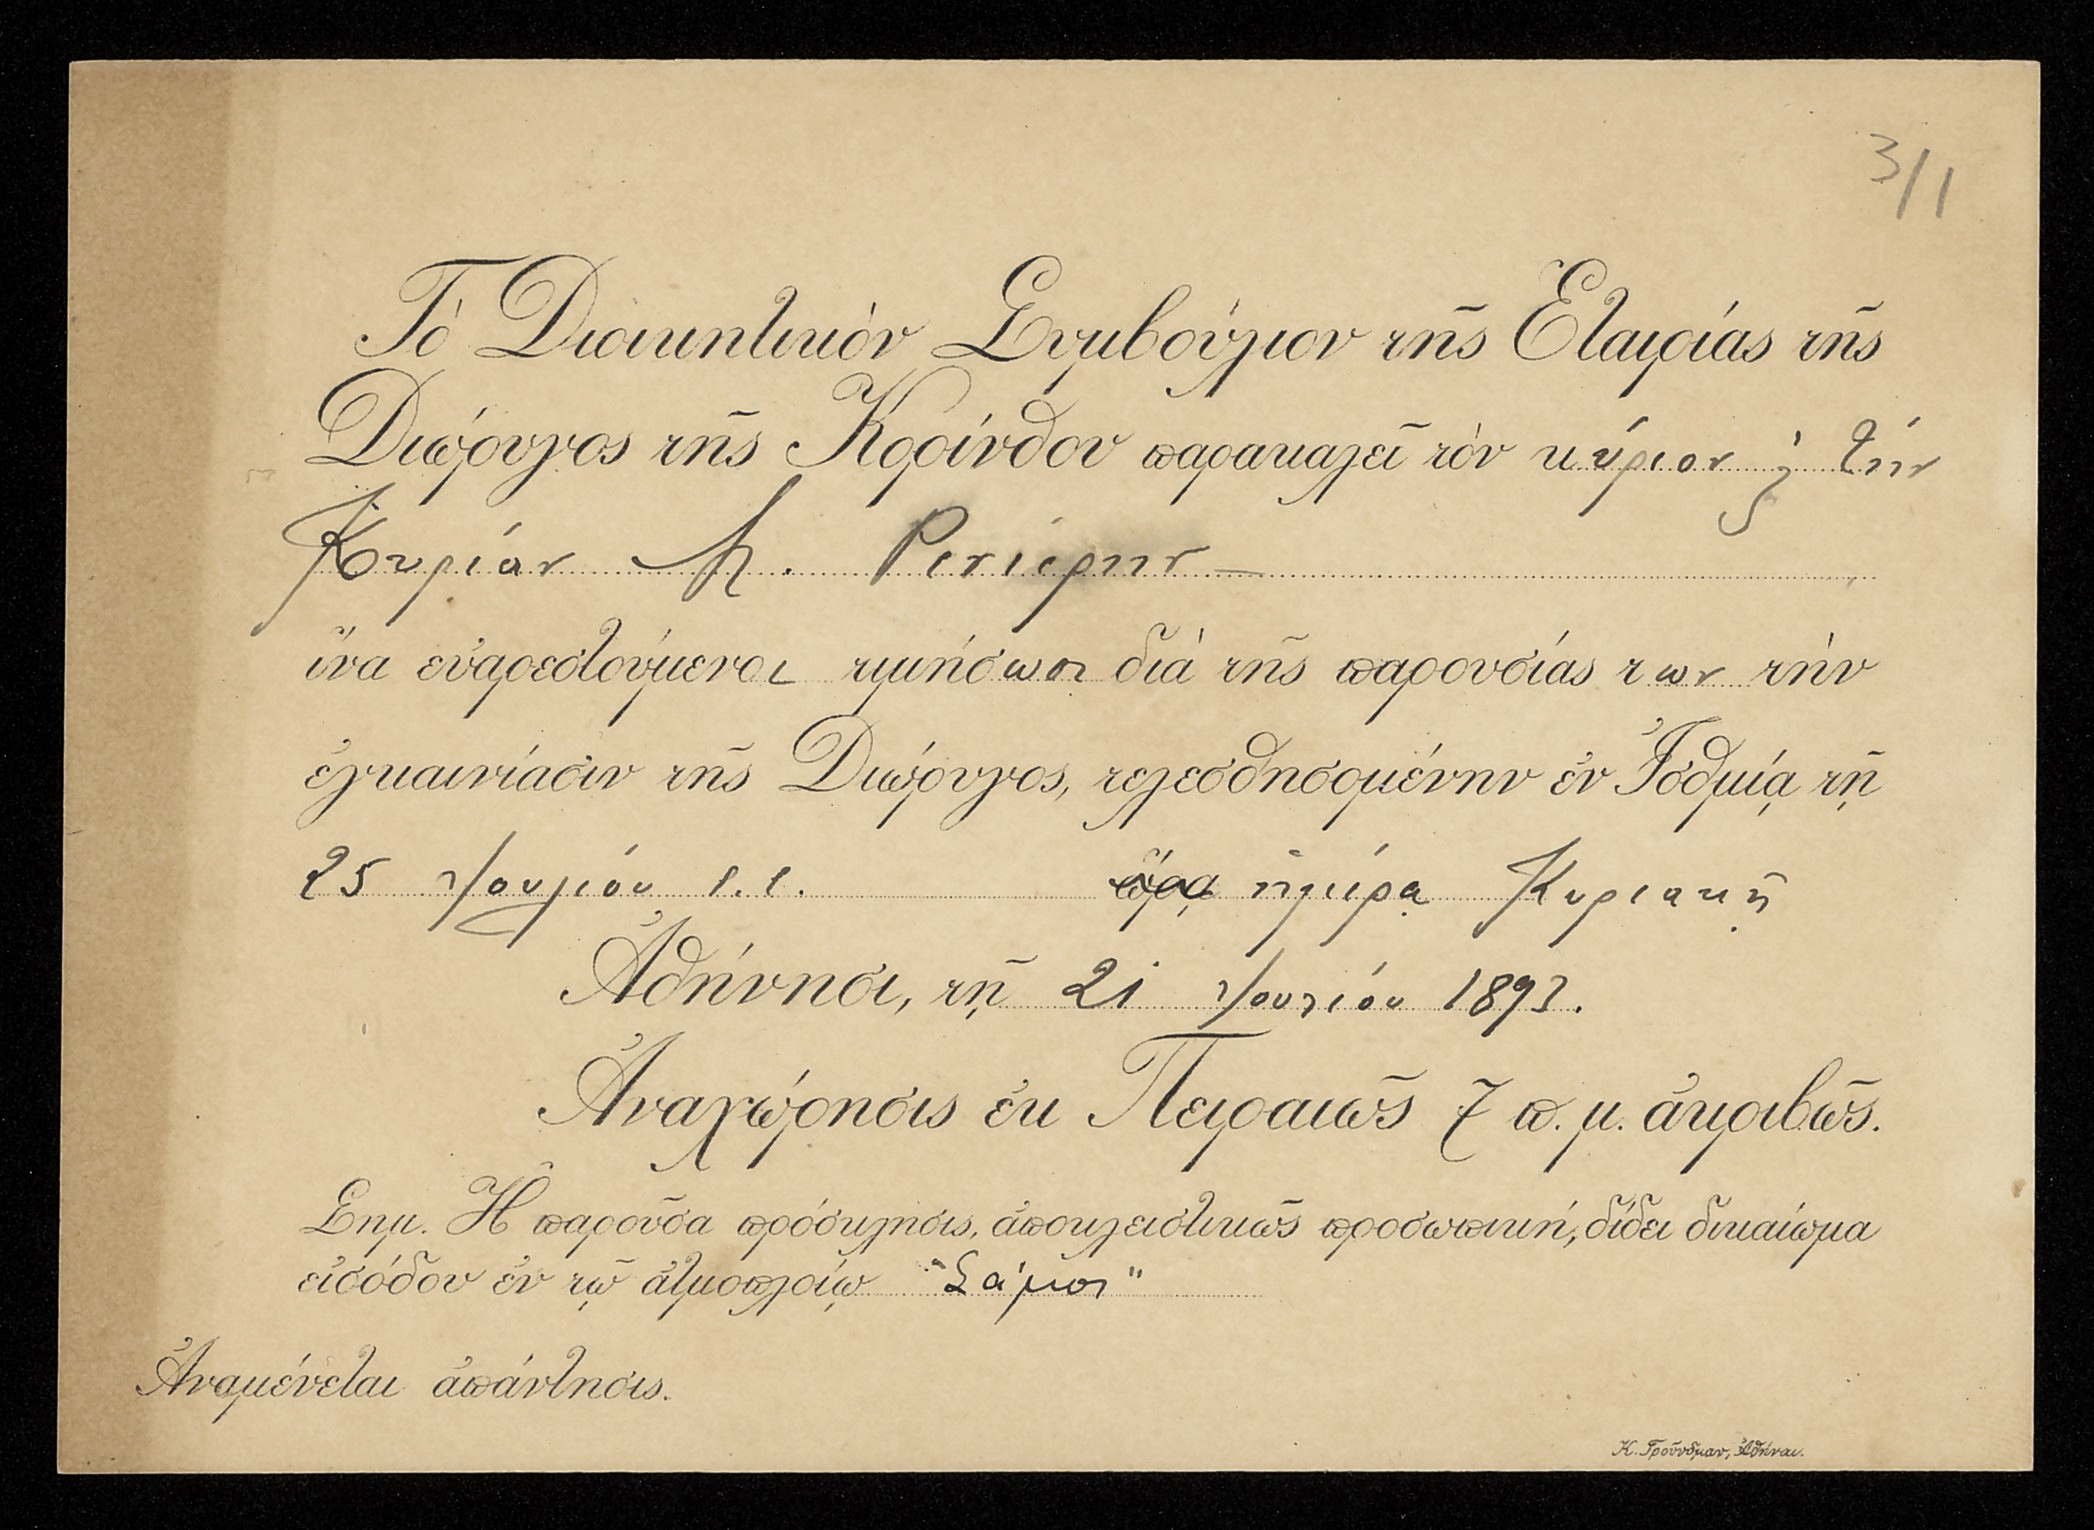 3/1
Τὸ Διοικητικὸν Συμβούλιον τῆς Εταιρίας τῆς
Διώρυγος τῆς Κορίνθου παρακαλεῖ τὸν κύριον ϗ τὴν
Κυρίαν Μ. Ρενιέρην
ἵνα εὐαρεστούμενοι τιμήσωσι διὰ τῆς παρουσίας των τὴν
ἐγκαινίασιν τῆς Διώρυγος, τελεσθησομένην ἐν Ἰσθμίᾳ τῇ
25 Ἰουλίου ἐ.ἐ. ὥρᾳ ἡμέρᾳ Κυριακῇ
Ἀθήνησι, τῇ 21 Ἰουλίου 1893.
Ἀναχώρησις ἐκ Πειραιῶς 7 π.μ. ἀκριβῶς.
Σημ. Ἡ παροῦσα πρόσκλησις, ἀποκλειστικῶς προσωπική, δίδει δικαίωμα
εἰσόδου ἐν τῷ ἀτμοπλοίῳ "Σάμος"
Ἀναμένεται ἀπάντησις.
Κ. Γροῦνδμαν, Ἀθῆναι.